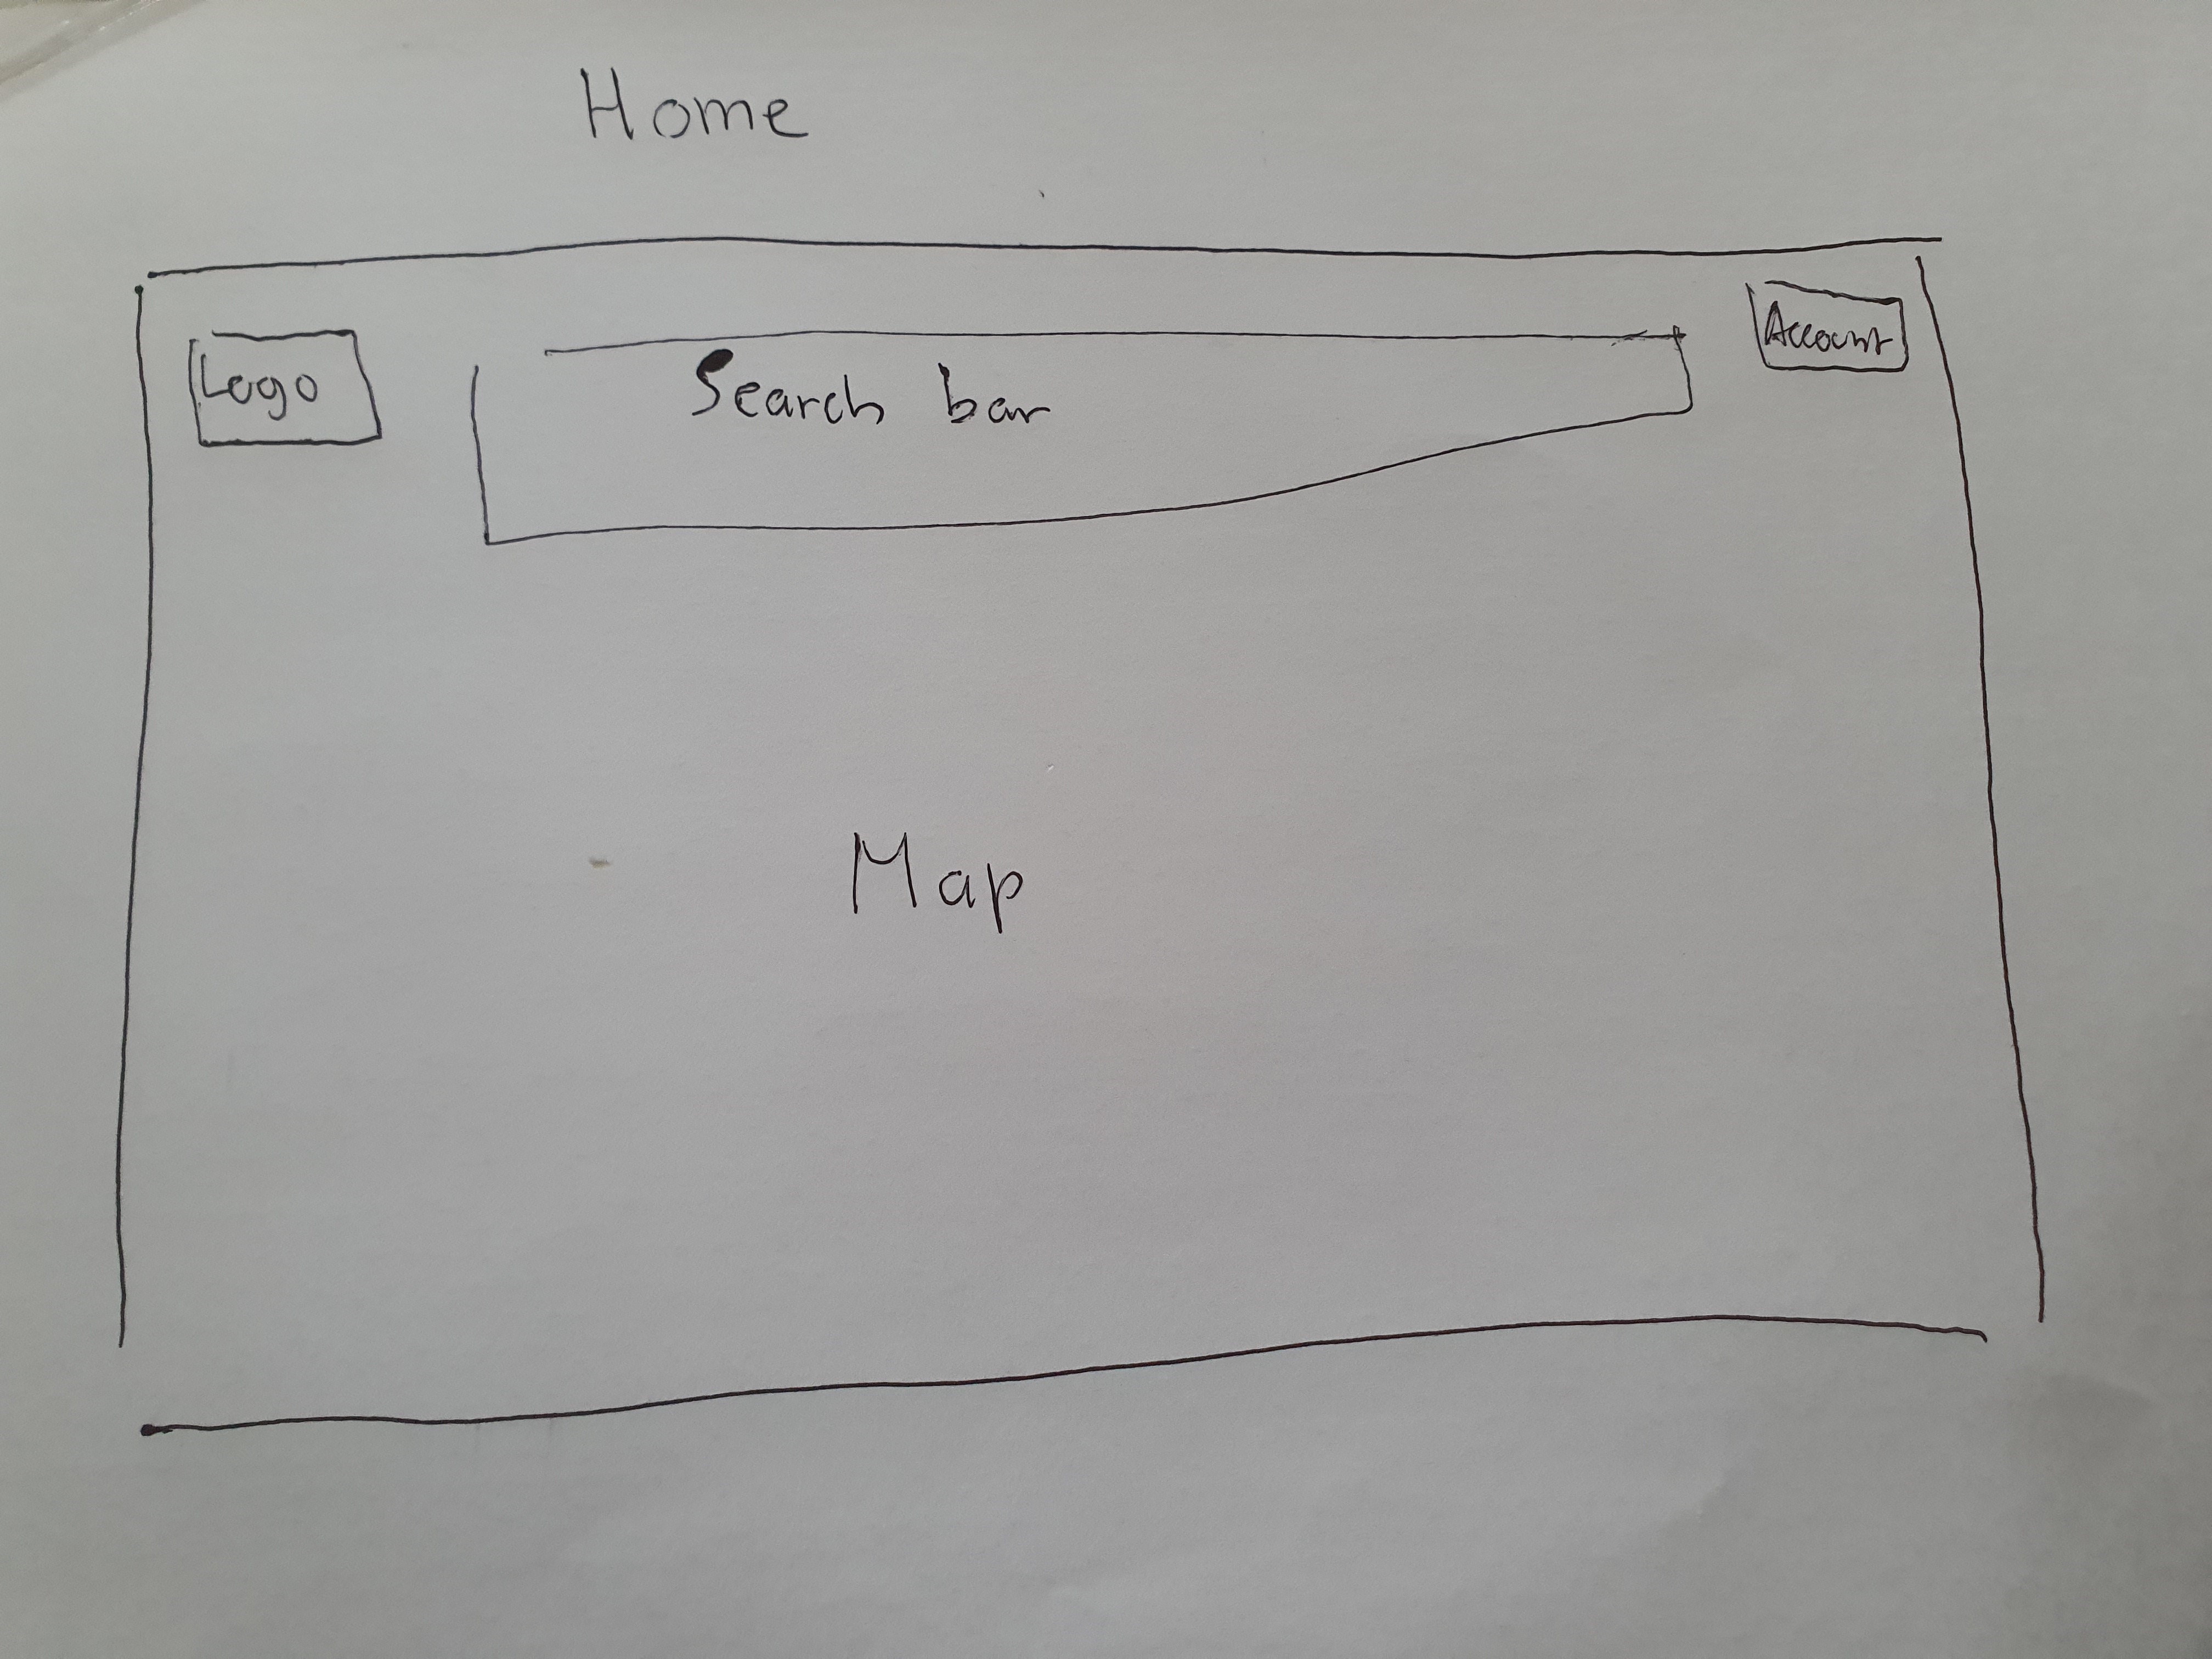 Home
Logo
Search bar
Account
Map